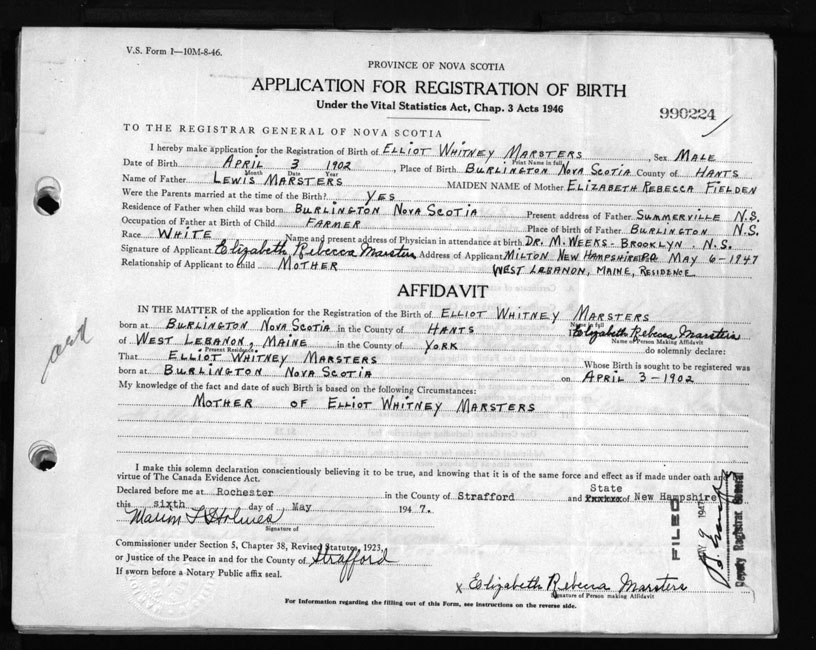 V.S. Form 1—10M-8-46.
PROVINCE OF NOVA SCOTIA
APPLICATION FOR REGISTRATION OF BIRTH
Under the Vital Statistics Act, Chap. 3 Acts 1946
990224
TO THE REGISTRAR GENERAL OF NOVA SCOTIA
I hereby make application for the Registration of Birth of ELLIOT WHITNEY MARSTERS, Sex MALE
Print Name in full
Date of Birth APRIL 3 1902, Place of Birth BURLINGTON NOVA SCOTIA County of HANTS
Month Date Year
Name of Father LEWIS MARSTERS MAIDEN NAME of Mother ELIZABETH REBECCA FIELDEN
Were the Parents married at time of the Birth? YES
Residence of Father when child was born BURLINGTON NOVA SCOTIA Present address of Father SUMMERVILLE N.S.
Occupation of Father at Birth of Child FARMER Place of birth of Father BURLINGTON N.S.
Race WHITE Name and present address of Physician in attendance at birth DR. M. WEEKS - BROOKLYN. N.S.
Signature of Applicant Elizabeth Rebecca Marsters Address of Applicant MILTON NEW HAMPSHIRE P.O. MAY 6-1947
Relationship of Applicant to child MOTHER WEST LEBANON, MAINE, RESIDENCE
AFFIDAVIT
IN THE MATTER of the application for the Registration of the Birth of ELLIOT WHITNEY MARSTERS
Name in full
born at BURLINGTON NOVA SCOTIA in the County of HANTS I Elizabeth Rebecca Marsters
Name of Person Making Affidavit
of WEST LEBANON, MAINE in the County of YORK do solemnly declare:
Present Residence
That ELLIOT WHITNEY MARSTERS Whose Birth is sought to be registered was
born at BURLINGTON NOVA SCOTIA on APRIL 3-1902
My knowledge of the fact and date of such Birth is based on the following Circumstances:
MOTHER OF ELLIOT WHITNEY MARSTERS
I make this solemn declaration conscientiously believing it to be true, and knowing that it is of the same force and effect as if made under oath and
virtue of The Canada Evidence Act.
Declared before me at Rochester in the County of Strafford and State of New Hampshire
this sixth day of May 1947.
Marion L Holmes
Signature of
Commissioner under Section 5, Chapter 38, Revised Statutes, 1923,
or Justice of the Peace in and for the County of Strafford
If sworn before a Notary Public affix seal.
x Elizabeth Rebecca Marsters
Signature of Person making Affidavit
For Information regarding the filling out of this Form, see instructions on the reverse side.
FILED
Deputy Registrar General